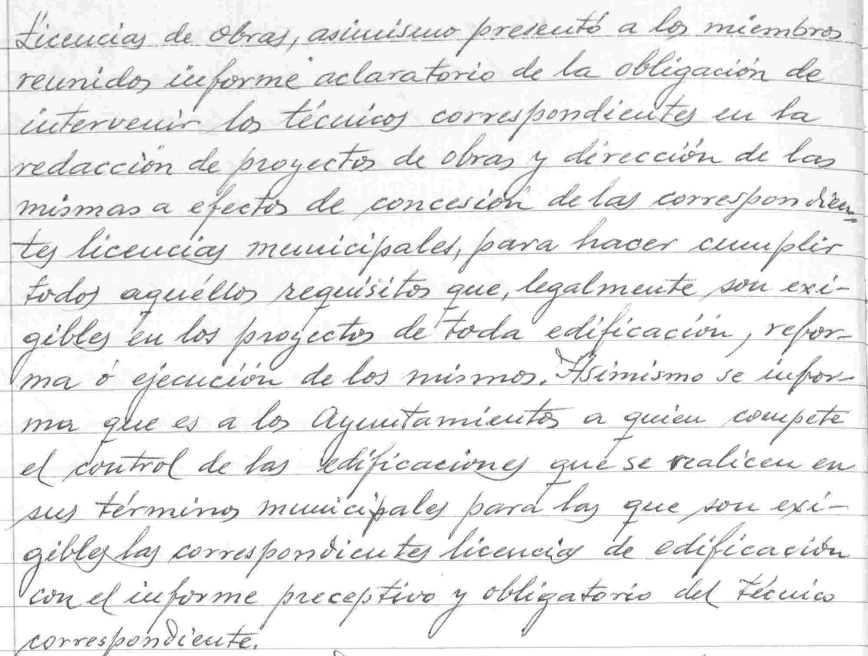 Licencias de obras, asimismo presentó a los miembros
reunidos informe aclaratorio de la obligación de
intervenir los técnicos correspondientes en la
redacción de proyectos de obras y dirección de las
mismas a efectos de concesión de las correspondien-
tes licencias municipales, para hacer cumplir
todos aquéllos requisitos que, legalmente son exi-
gibles en los proyectos de toda edificación, refor-
ma ó ejecución de los mismos. Asimismo se infor-
ma que es a los Ayuntamientos a quien compete
el control de las edificaciones que se realicen en
sus términos municipales para las que son exi-
gibles las correspondientes licencias de edificación
con el informe preceptivo y obligatorio del técnico
correspondiente.